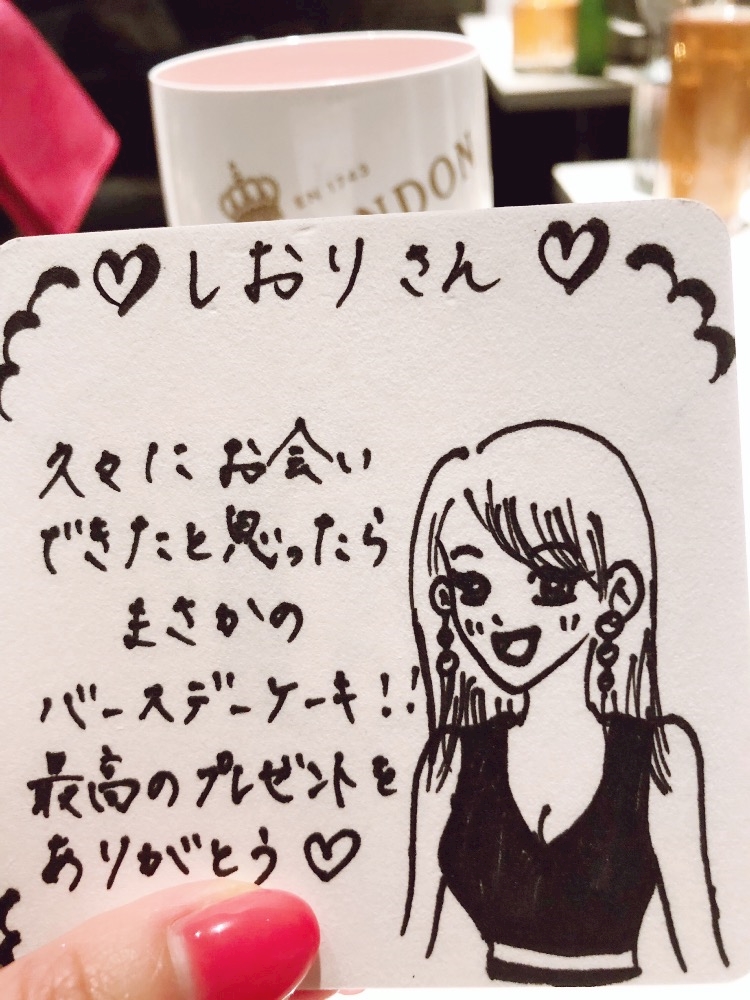 EN 1743
NDON
♡しおりさん♡
久々にお会い
できたと思ったら
まさかの
バースデーケーキ!!
最高のプレゼントを
ありがとう♡